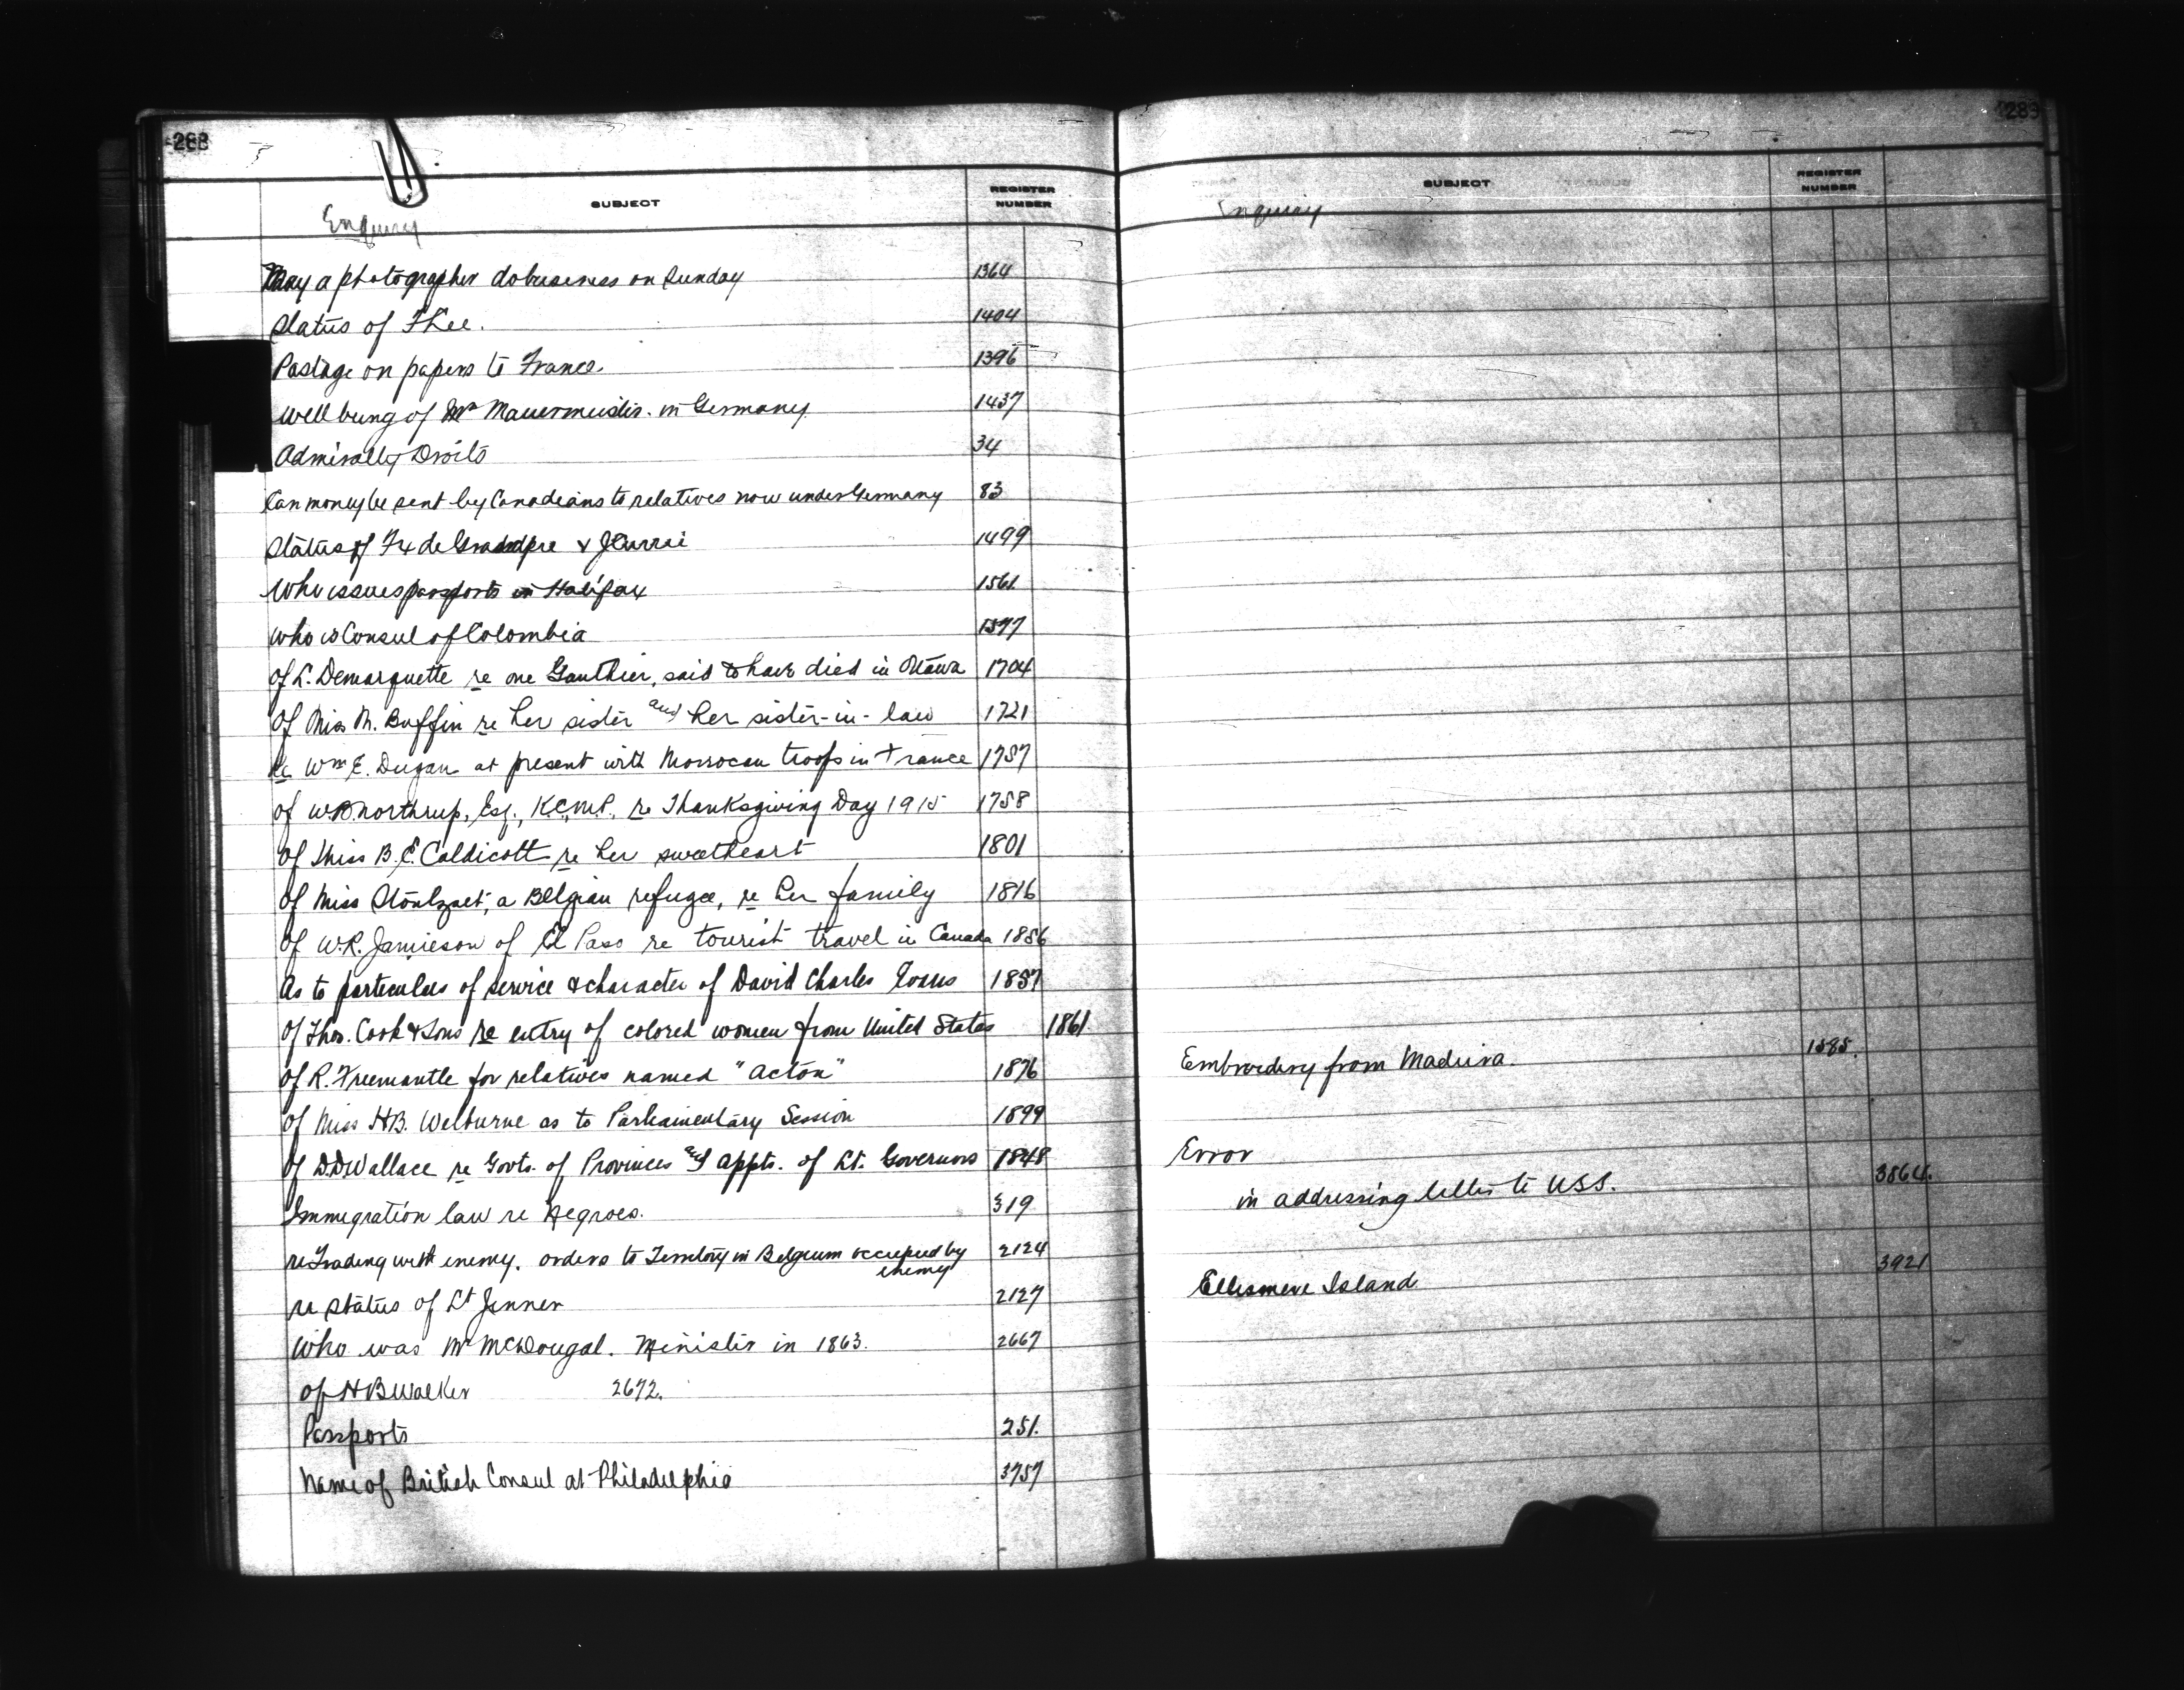 288
SUBJECT
REGISTER NUMBER
Enquiry
May a photographer do business on Sunday 1364
Status of F Lee. 1404
Postage on papers to France. 1396
Well being of Mr Mauermeister. in Germany 1437
Admiralty Droits 34
Can money be sent by Canadians to relatives now under Germany 83
Status of Fx de Grandpre & J Currie 1499
Who issues passports in Halifax 1561
Who is Consul of Colombia 1577
Of L. Demarquette re one Gauthier, said to have died in Ottawa 1704
Of Miss M. Buffin re her sister and her sister-in-law 1721
Re Wm E. Dugan at present with Morrocan troops in France 1757
of W.B. Northrup, Esq., K.C., M.P., re Thanksgiving Day 1915 1758
Of Miss B. E. Caldicott re her sweetheart 1801
Of Miss a Belgian refugee, re her family 1816
Of W.R. Jamieson of El Paso re tourist travel in Canada 1856
As to particulars of service & character of David Charles Evans 1857
Of Thos. Cook & Sons re entry of colored women from United States 1861
Of R. Freemantle for relatives named "Acton" 1876
Of Miss H.B. Welburne as to Parliamentary Session 1899
Of D.D Wallace re Govts. of Provinces and appts. of Lt. Governors 1848
Immigration law re Negroes. 319
re Trading with enemy. orders to Territory in Belgium occupied by 2124
enemy
re Status of Lt Jenner 2127
Who was Mr McDougal. Minister in 1863. 2667
of H B Walker 2672.
Passports 251.
Name of British Consul at Philadelphia 3757
289
SUBJECT
REGISTER NUMBER
Enquiry
Embroidery from Madeira. 1585.
Error
in addressing letter to USS. 3864.
Ellesmere Island. 3921